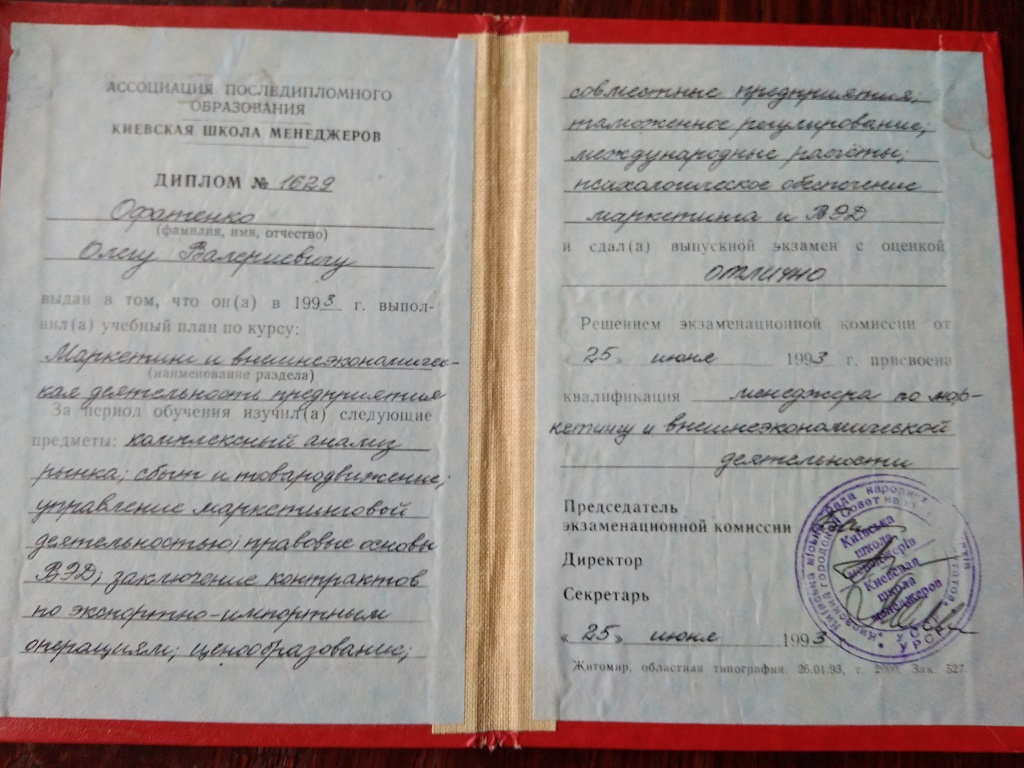 АССОЦИАЦИЯ ПОСЛЕДИПЛОМНОГО
ОБРАЗОВАНИЯ
КИЕВСКАЯ ШКОЛА МЕНЕДЖЕРОВ
ДИПЛОМ № 1629
Офатенко
(фамилия, имя, отчество)
Олегу Валериевичу
выдан в том, что он(а) в 1993 г. выпол-
нил(а) учебный план по курсу:
Маркетинг и внешнеэкономичес-
(наименование раздела)
кая деятельность предприятия
За период обучения изучил(а) следующие
предметы: комплексный анализ
рынка; сбыт и товародвижение;
управление маркетинговой
деятельностью; правовые основы
ВЭД; заключение контрактов
по экспортно-импортным
операциям; ценообразование;
совместные предприятия;
таможенное регулирование;
международные расчёты;
психологическое обеспечение
маркетинга и ВЭД
и сдал(а) выпускной экзамен с оценкой
отлично
Решением экзаменационной комиссии от
25» июня 1993 г. присвоена
квалификация менеджера по мар-
кетингу и внешнеэкономической
деятельности
Председатель
экзаменационной комиссии
Директор
Секретарь
«25» июня 1993 г.
Київська
школа
менеджерів
Киевская
школа
менеджеров
Житомир, областная типография. 26.01.93, т. 2000. Зак. 527.